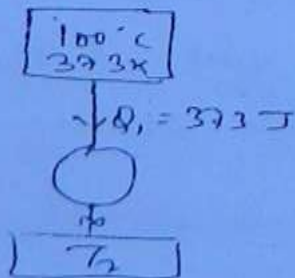 100°C
373K
Q₁ = 373 J
T₂